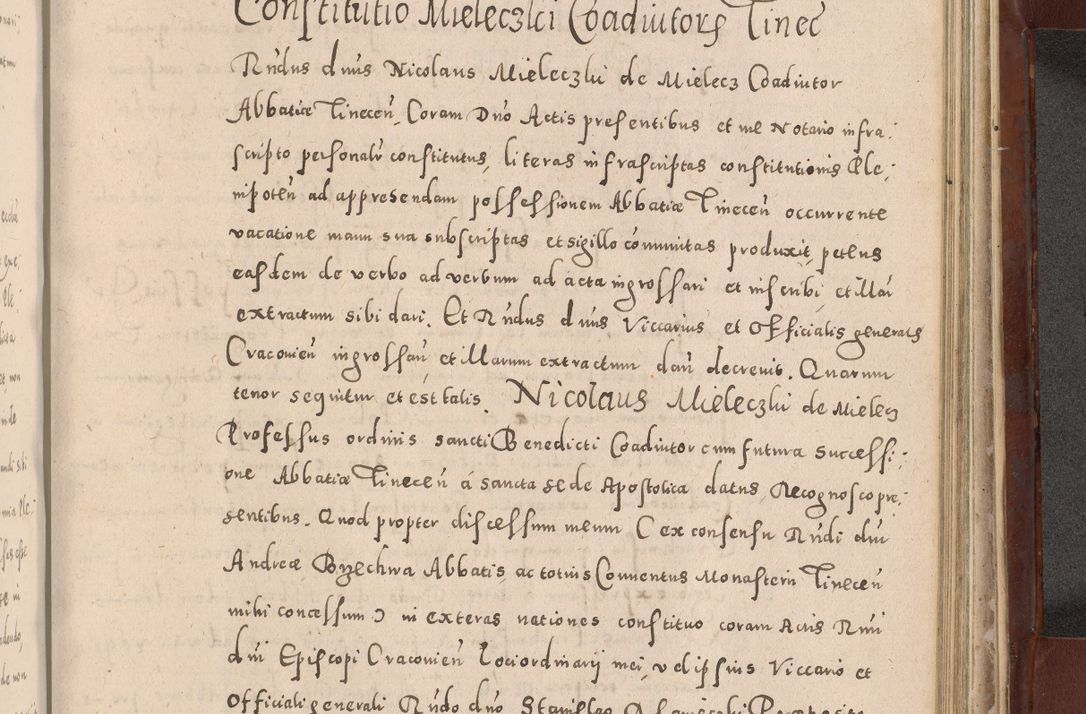 Constitutio Mieleczki Coadiutors Tinec
Rndus dnus Nicolaus Mieleczki de Mielecz Coadiutor
Abbatiæ Tinecen, Coram Dno Actis presentibus et me Notario infra:
scripto personalr constitutus, literas infrascriptas constitutionis Ple:
nipoten ad appresendam possessionem Abbatiæ Tinecen occurrente
vacatione manu sua subscriptas et sigillo communitas produxit, petens
easdem de verbo ad verbum ad acta ingrossari et inscribi, et illar
extractum sibi dari. Et Rndus dnus Viccarius et Officialis generals
Cracovien ingrossari, et illarum extractum dari decrevit. Quarum
tenor sequitur et est talis. Nicolaus Mieleczki de Mielecz
Professus ordinis sancti Benedicti Coadiutor cum futura successi:
one Abbatiæ Tinecen á sancta sede Apostolica datus, Recognosco pre:
sentibus. Quod propter discessum meum C ex consensu Rndi dni
Andreæ Brzechwa Abbatis ac totius Conventus Monasterii Tinecen
mihi concessum Ɔ in exteras nationes constituo coram Actis Rmi
dni Episcopi Cracovien Lociordinarij mei, vel ipsius Viccario et
Officiali generali Rndo dno Stanislao